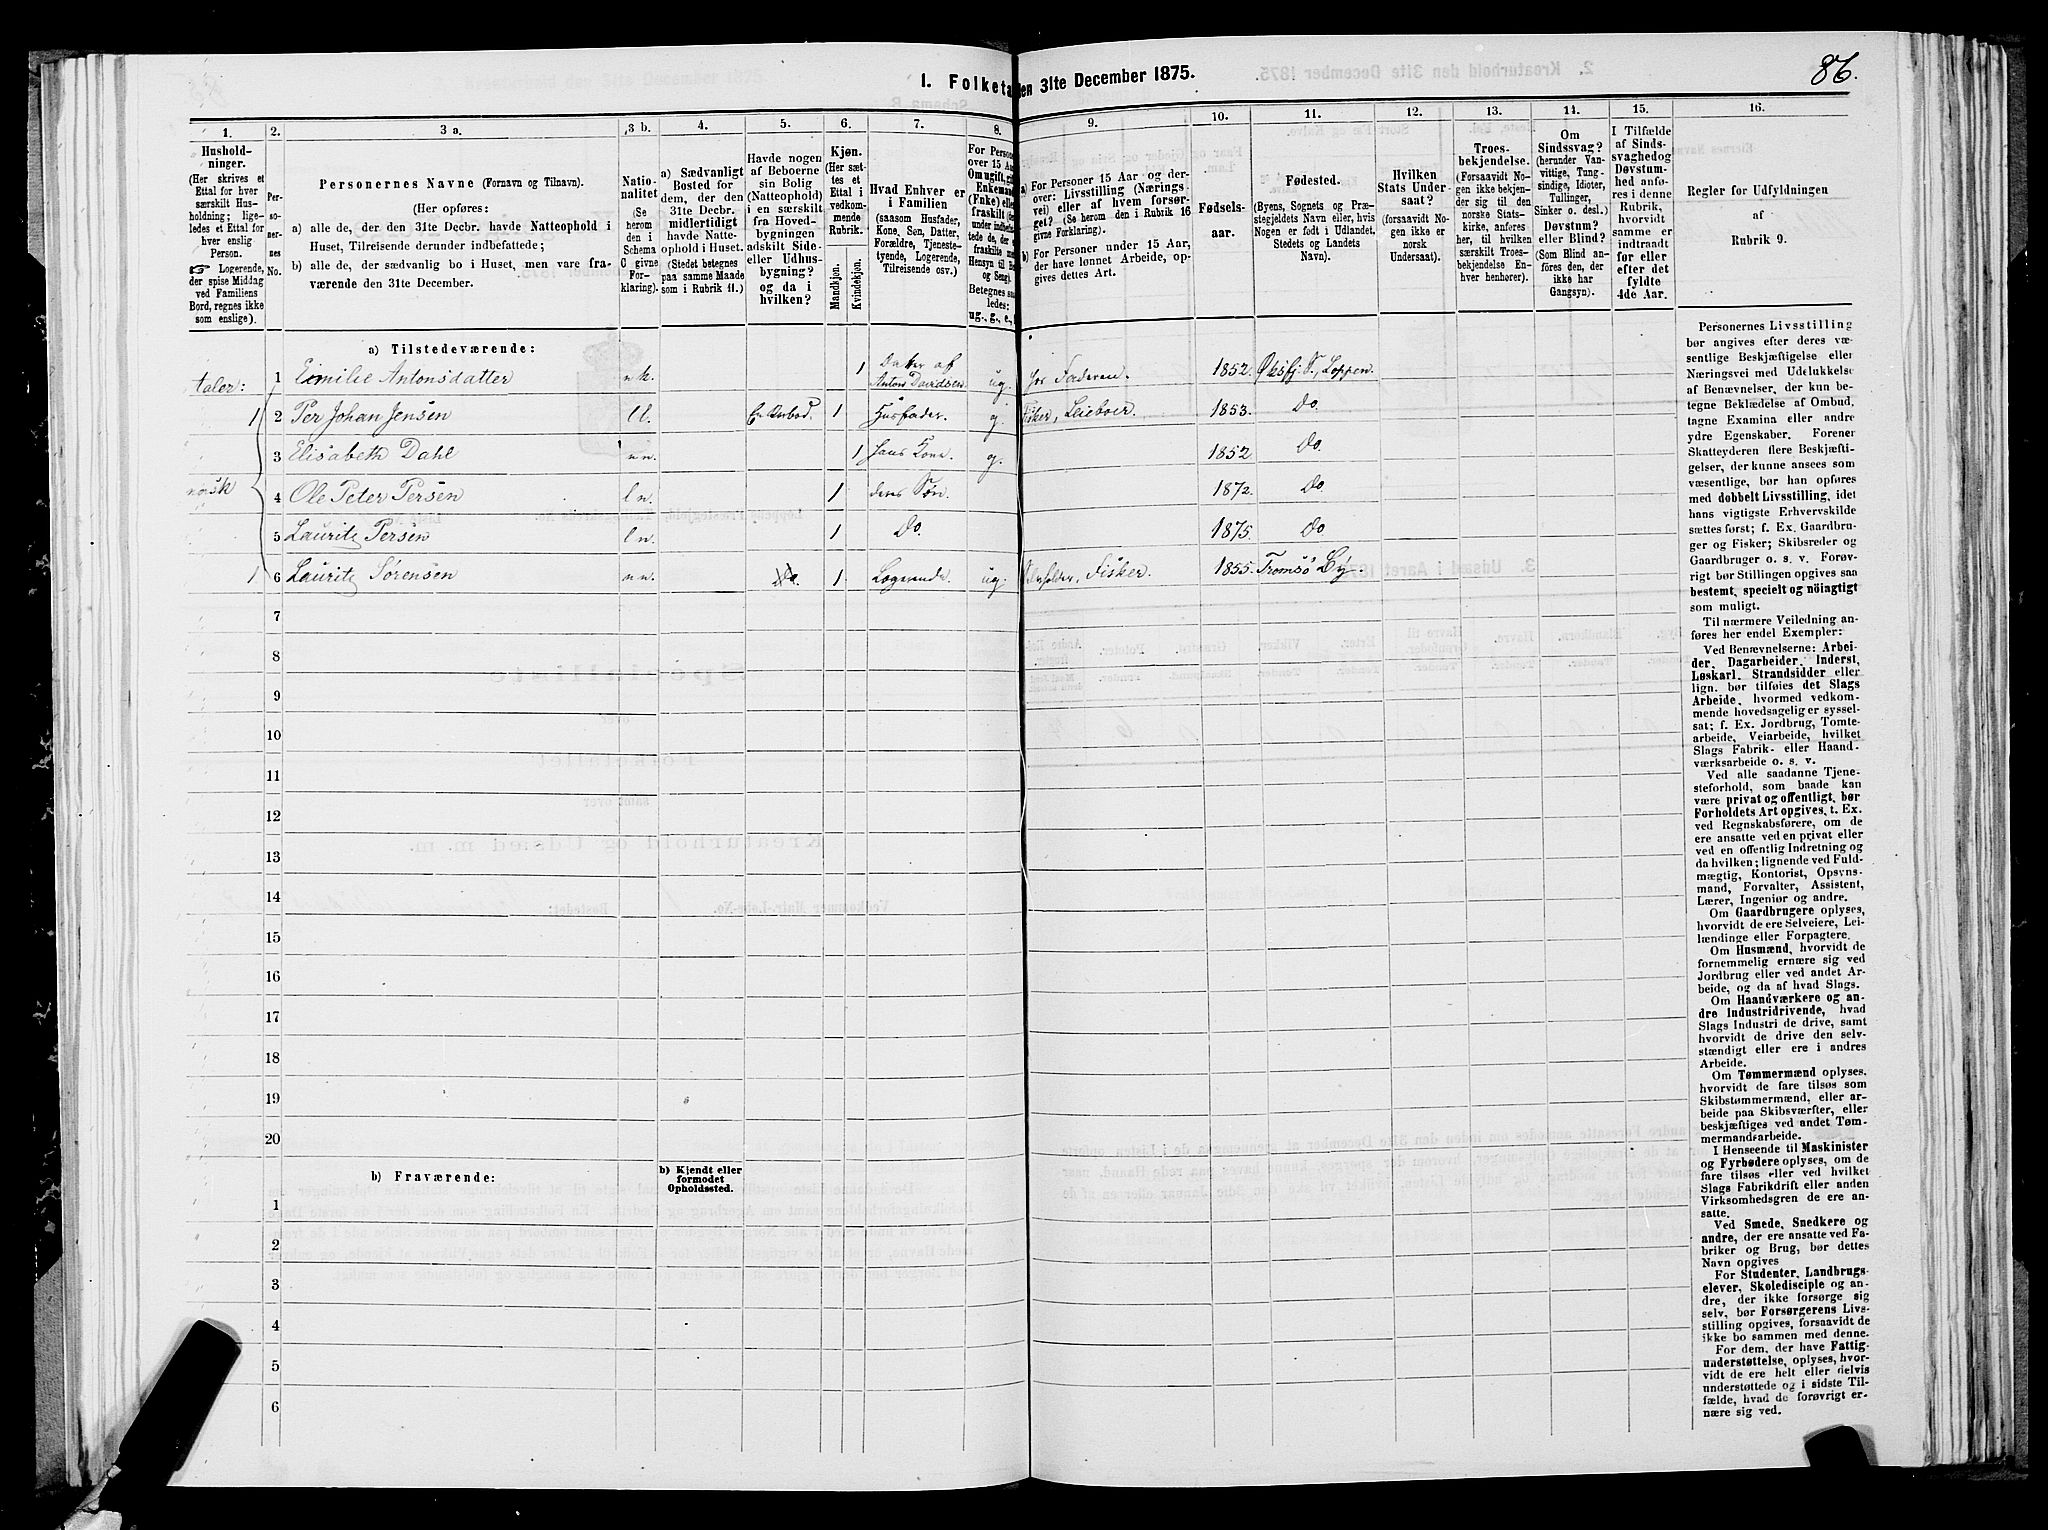 86.
I. Folketa
en 31te December 1875.
1.
2.
3 a.
3 b.
4.
5.
6.
7.
8.
9.
10.
11.
12.
13.
14.
15.
16.
Hushold-
ninger.
(Her skrives et
Ettal for hver
særskilt Hus-
holdning; lige-
ledes et Ettal for
hver enslig
Person.
Logerende,
der spise Middag
ved Familiens
Bord, regnes ikke
som enslige).
Per-
so-
ner-
nes
No.
Personernes Navne (Fornavn og Tilnavn).
(Her opføres:
a) alle de, der den 31te Decbr. havde Natteophold i
Huset, Tilreisende derunder indbefattede;
b) alle de, der sædvanlig bo i Huset, men vare fra-
værende den 31te December.
Natio-
nalitet
(Se
herom
den i
Schema
C givne
For-
klaring).
a) Sædvanligt
Bosted for
dem, der den
31te Decbr.
midlertidigt
havde Natte-
ophold i Huset.
(Stedet betegnes
paa samme Maade
som i Rubrik 11.)
Havde nogen
af Beboerne
sin Bolig
(Natteophold)
i en særskilt
fra Hoved-
bygningen
adskilt Side-
eller Udhus-
bygning?
og da i
hvilken?
Kjøn.
(Her sæt-
tes et
Ettal i
vedkom-
mende
Rubrik.
Mandkjøn.
Kvindekjøn.
Hvad Enhver er
i Familien
(saasom Husfader,
Kone, Søn, Datter,
Forældre, Tjeneste-
tyende, Logerende,
Tilreisende osv.)
For Person
over 15 Aa
Om ugift, g
Enkemand
(Enke) elle
fraskilt
Betegnes saa
ledes:
ug., g., e.,
a)
For Personer 15 Aar og der-
over: Livsstilling (Nærings-
vei) eller af hvem forsør-
get? (Se herom den i Rubrik 16
givne Forklaring).
b) For Personer under 15 Aar,
der have lønnet Arbeide, op-
gives dettes Art.
Fødsels-
aar.
Fødested.
(Byens, Sognets og Præ-
stegjeldets Navn eller, hvis
Nogen er født i Udlandet,
Stedets og Landets
Navn).
Hvilken
Stats Under-
saat?
(forsaavidt No-
gen ikke er
norsk
Undersaat).
Troes-
bekjendelse.
(Forsaavidt No-
gen ikke bekjen-
der sig til den
norske Stats-
kirke, anføres
her, til hvilken
særskilt Troes-
bekjendelse En-
hver henhører).
Om
Sindssvag?
(herunder Van-
vittige, Tung-
sindige, Idioter,
Tullinger,
Sinker o. desl.)
Døvstum?
eller Blind?
(Som Blind an-
føres den, der
ikke har
Gangsyn).
I Tilfælde
af Sinds-
svaghed og
Døvstum-
hed anfø-
res i denne
Rubrik,
hvorvidt
samme er
indtraadt
før eller
efter det
fyldte
4de Aar.
Regler for Udfyldningen
af
Rubrik 9.
a) Tilstedeværende:
taler:
1 Emilie Antonsdatter nk. 1 Datter af Antons Davidsen ug. hos Faderen. 1852. Øksfj. S., Loppen.
1 2 Per Johan Jensen ll. 1 Husfader. g. Fisker, Leieboer. 1853. Do.
3 Elisabeth Dahl nn. 1 hans Kone. g. 1852 Do.
norsk 4 Ole Peter Persen ln. 1 deres Søn. 1872. Do.
5 Lauritz Persen ln. 1 Do. 1875. Do
1 6 Lauritz Sørensen nn. Do. 1 Logerende ug. Fisker. 1855. Tromsø By.
7
8
9
10
11
12
13
14
15
16
17
18
19
20
b) Fraværende:
b) Kjendt eller
formodet
Opholdssted.
1
2
3
4
5
6
Personernes Livsstilling
bør angives efter deres væ-
sentlige Beskjæftigelse eller
Næringsvei med Udelukkelse
af Benævnelser, der kun be-
tegne Beklædelse af Ombud,
tagne Examina eller andre
ydre Egenskaber. Forener
Skatteyderen flere Beskjæfti-
gelser, der kunne ansees som
væsentlige, bør han opføres
med dobbelt Livsstilling, idet
hans vigtigste Erhvervskilde
sættes først; f. Ex. Gaardbru-
ger og Fisker; Skibsreder og
Gaardbruger o. s. v. Forøv-
rigt bør Stillingen opgives saa
bestemt, specielt og nöiagtigt
som muligt.
Til nærmere Veiledning an-
føres her endel Exempler:
Ved Benævnelserne: Arbei-
der, Dagarbeider, Inderst,
Løskarl, Strandsidder eller
lign. bør tilføies det Slags
Arbeide, hvormed vedkom-
mende hovedsagelig er syssel-
sat; f. Ex. Jordbrug, Tomte-
arbeide, Veiarbeide, hvilket
Slags Fabrik- eller Haand-
værksarbeide o. s. v.
Ved alle saadanne Tjene-
steforhold, som baade kan
være privat og offentligt, bør
Forholdets Art opgives, t. Ex.
ved Regnskabsførere, om de
ere ansatte ved en privat eller
ved en offentlig Indretning og
da hvilken; lignende ved Fuld-
mægtig, Kontorist, Opsyns-
mand, Forvalter, Assistent,
Lærer, Ingeniør og andre.
Om Gaardbrugere oplyses,
hvorvidt de ere Selveiere, Lei-
lændinge eller Forpagtere.
Om Husmænd, hvorvidt de
fornemmelig ernære sig ved
Jordbrug eller ved andet Ar-
beide, og da af hvad Slags.
Om Haandværkere og an-
dre Industridrivende, hvad
Slags Industri de drive, samt
hvorvidt de drive den selv-
stændigt eller ere i andres
Arbeide.
Om Tømmermænd oplyses,
hvorvidt de fare tilsøs som
Skibstømmermænd, eller ar-
beide paa Skibsværfter, eller
beskjæftiges ved andet Tøm-
mermandsarbeide.
I Henseende til Maskinister
og Fyrbødere oplyses, om de
fare tilsøs eller ved hvilket
Slags Fabrikdrift eller anden
Virksomhedsgren de ere an-
satte.
Ved Smede, Snedkere og
andre, der ere ansatte ved Fa-
briker og Brug, bør dettes
Navn opgives
For Studenter, Landbrugs-
elever, Skoledisciple og an-
dre, der ikke forsørge sig
selv, bør Forsørgerens Livs-
stilling opgives, forsaavidt de
ikke bo sammen med denne.
For dem, der have Fattig-
understøttelse, oplyses, hvor-
vidt de ere helt eller delvis
understøttede og i sidste Til-
fælde, hvad de forøvrigt er-
nære sig ved.